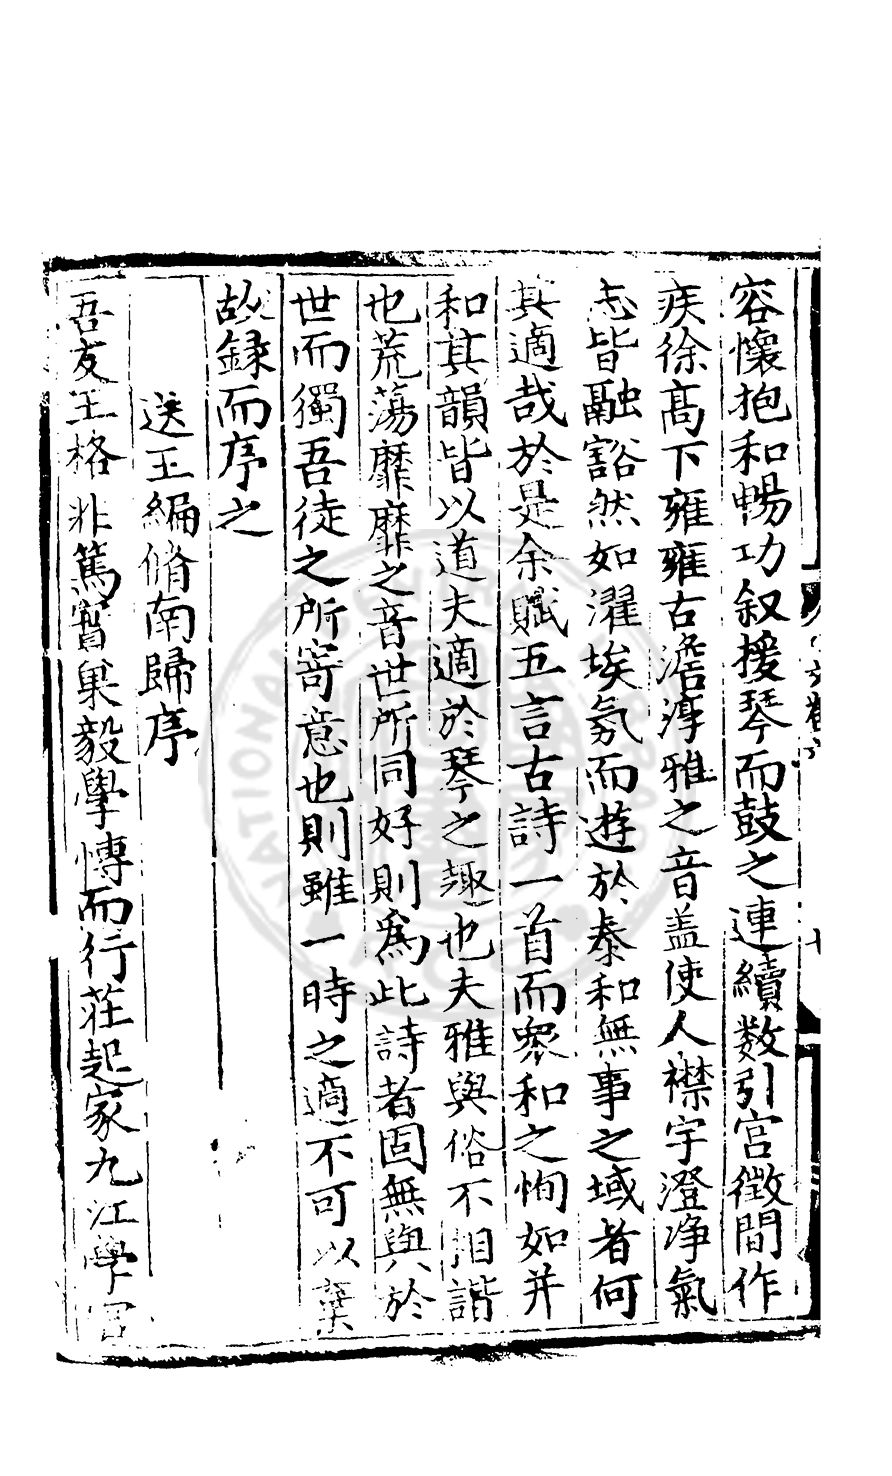 容懷抱和暢功叙援琴而鼓之連續数引宫徵間作
疾徐高下雍雍古澹淳雅之音盖使人襟宇澄净氣
志皆融豁然如濯埃氛而遊於泰和無事之域者何
其適哉於是余賦五言古詩一首而衆和之恂如并
和其韻皆以道夫適於琴之趣也夫雅與俗不相諧
也荒蕩靡靡之音世所同好則為此詩者固無與於
世而獨吾徒之所寄意也則雖一時之適不可以棄
故録而序之
送王編脩南歸序
吾友王格非篤實果毅學博而行莊起家九江學官